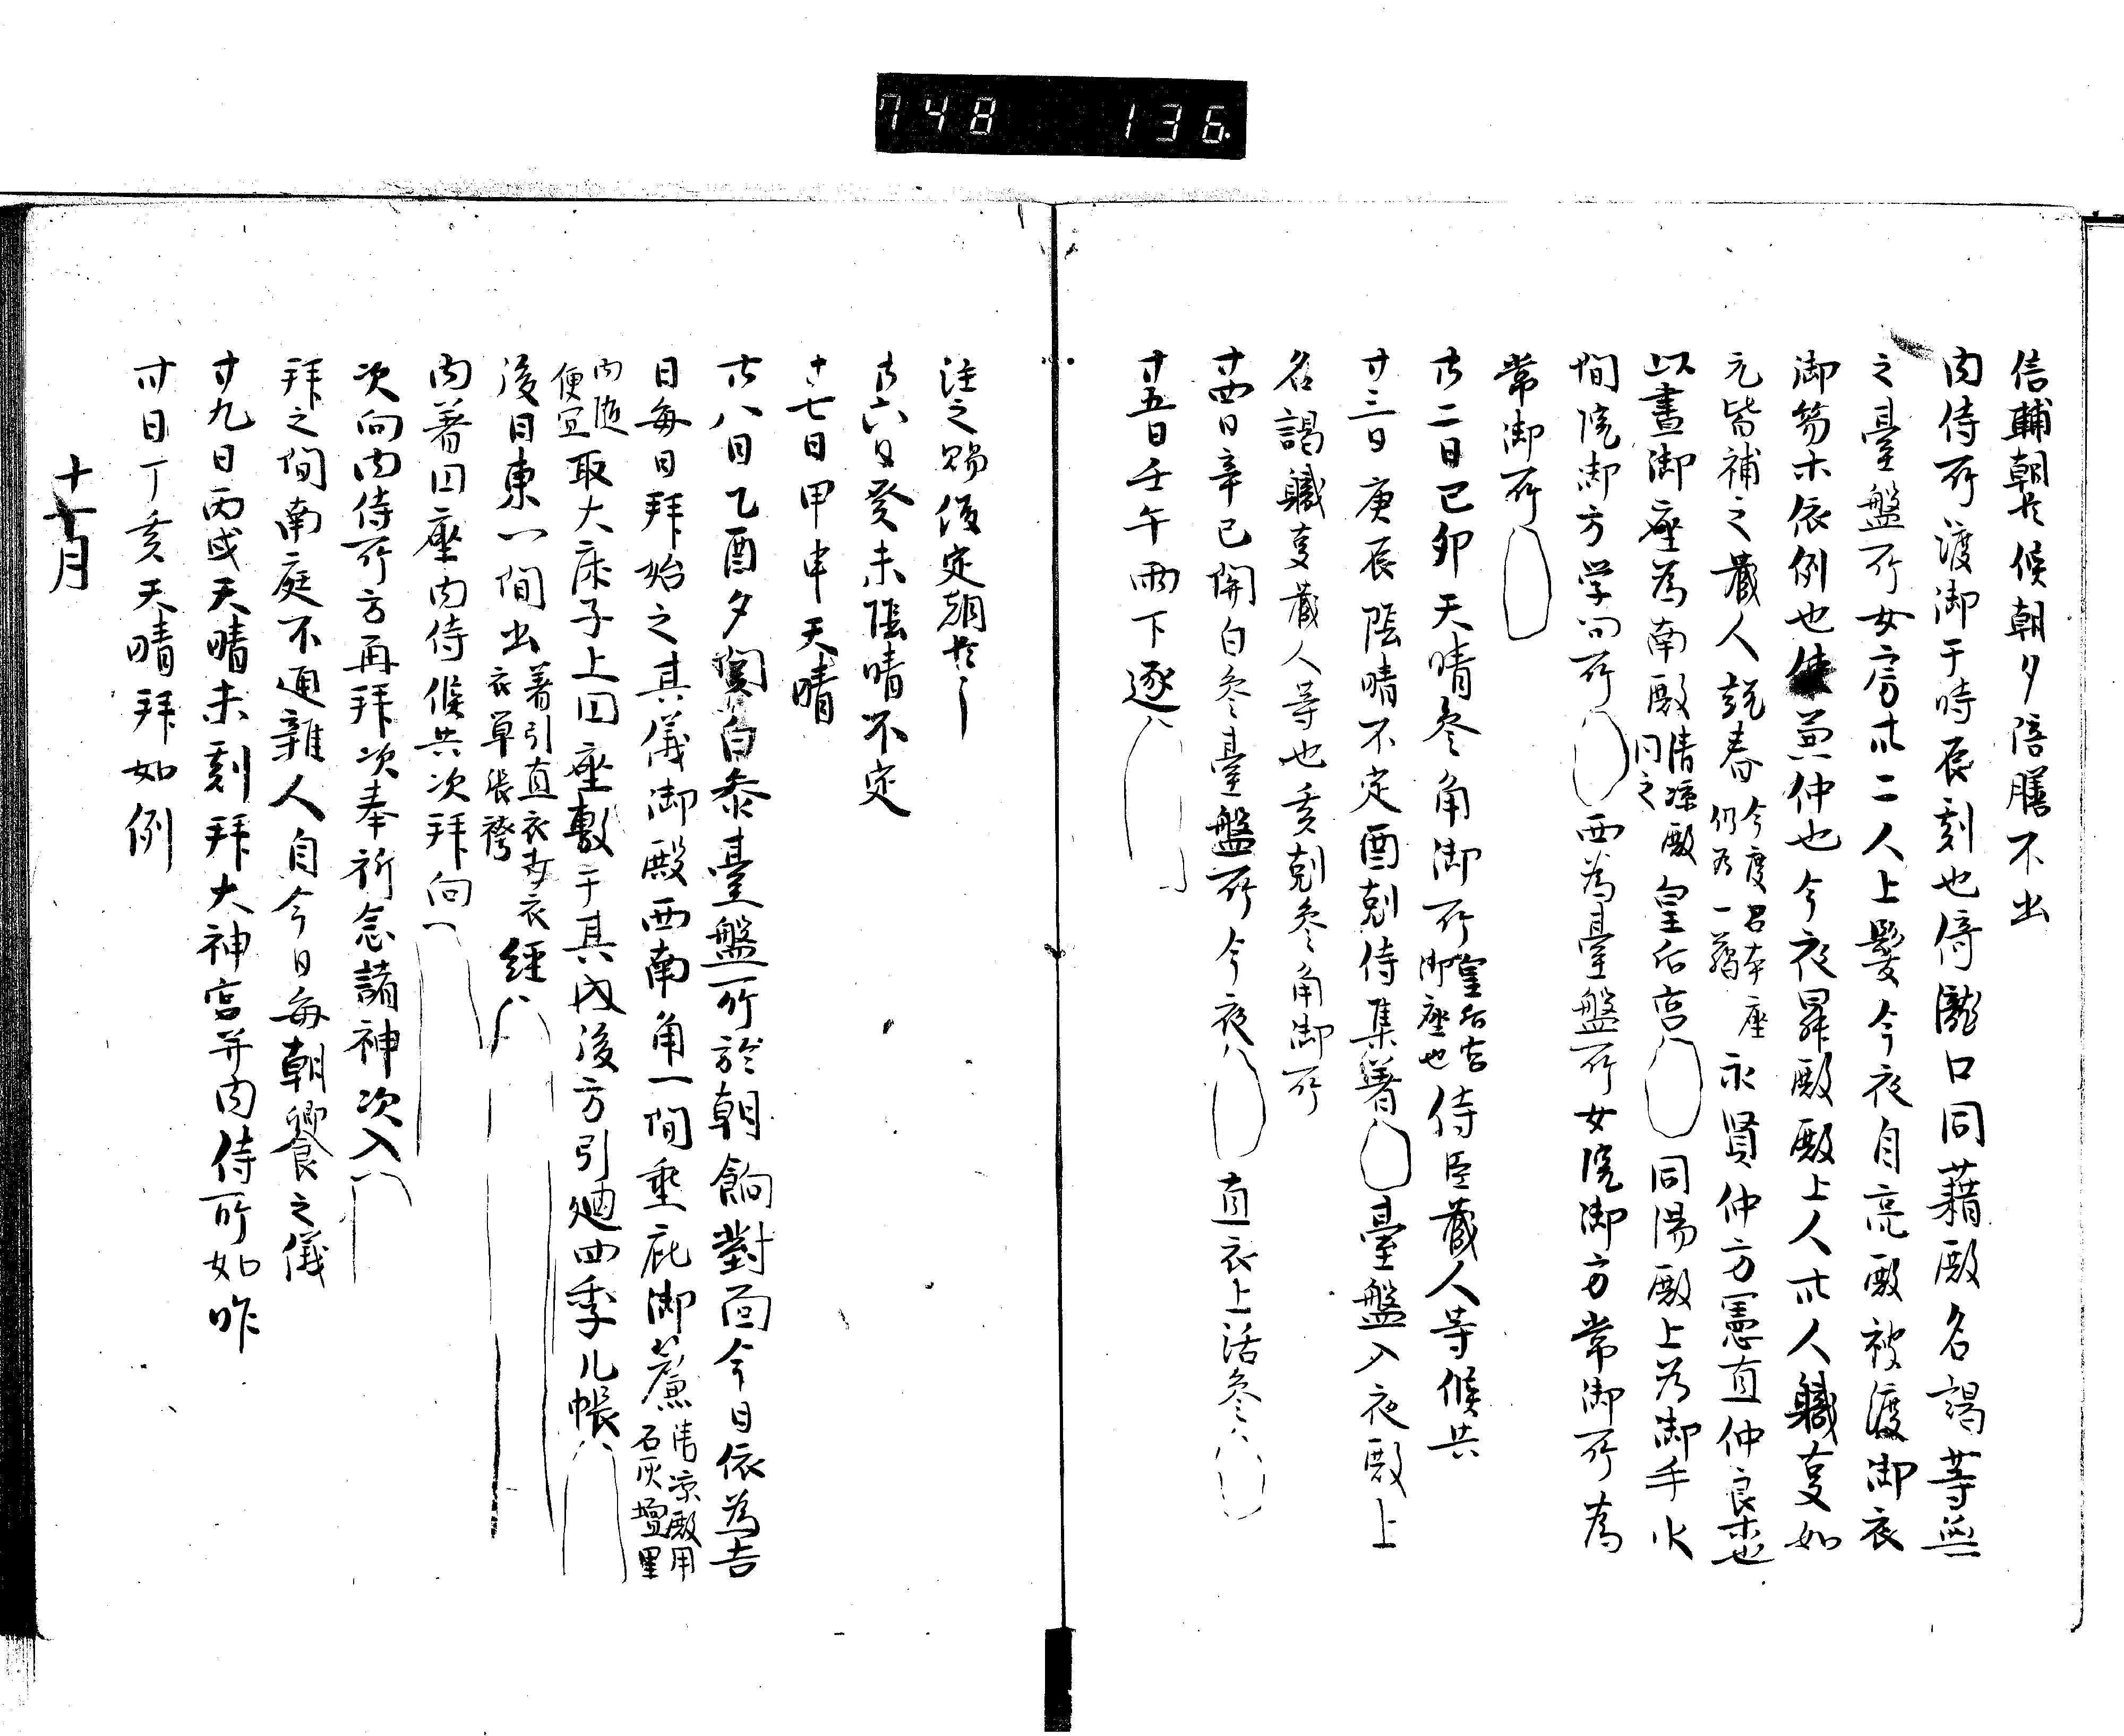 748 136
信輔朝臣候朝夕陪膳不出
内侍所渡御于時辰刻也侍瀧口同藉殿名謁等無
之臺盤所女房廿二人上髪今夜自亮殿被渡御衣
御笏等依例也兼仲也今夜昇殿殿上人廿人職事如
元皆補之蔵人説春今度召本座仍為一﨟永賢仲方憲直仲良等也
以晝御座為南殿清凉殿同之皇后宮同湯殿上為御手水
間院御方学問所西為臺盤所女院御方常御所為
常御所
廿二日己卯天晴参角御所皇后宮御座也侍臣蔵人等候共
廿三日庚辰陰晴不定酉剋侍集著臺盤入夜殿上
名謁職事蔵人等也亥剋参角御所
廿四日辛巳関白参臺盤所今夜直衣上活参
廿五日壬午雨下逐
注之賜俊定朝臣
廿六日癸未陰晴不定
廿七日甲申天晴
廿八日乙酉夕関白参臺盤所於朝餉對面今日依為吉
日毎日拜始之其儀御殿西南角一間垂庇御簾清凉殿用石灰壇里
内随便宜取大床子上円座敷于其内後方引廻四季几帳
後自東一間出著引直衣女衣単張袴経
内著円座内侍候共次拜向
次向内侍所方再拜次奉祈念諸神次入
拜之間南庭不通雜人自今日毎朝饗之儀
廿九日丙戌天晴未刻拜大神宮并内侍所如昨
卅日丁亥天晴拜如例
十一月